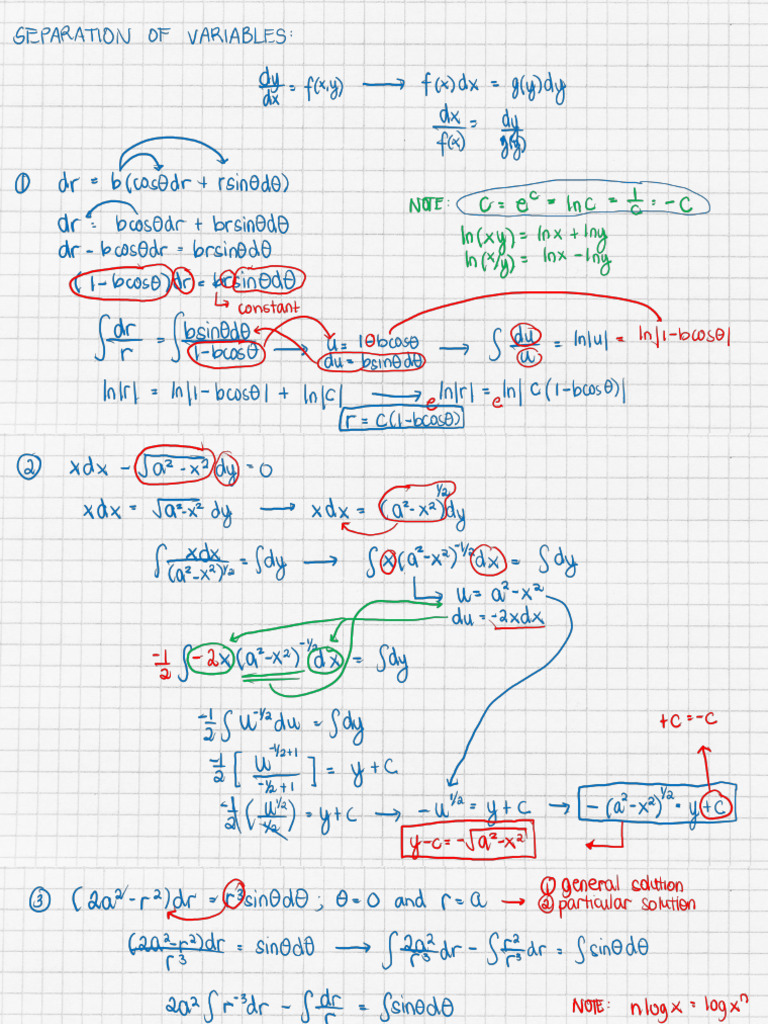 SEPARATION OF VARIABLES:
dy/dx = f(x,y) ⟶ f(x)dx = g(y)dy
dx/f(x) = dy/g(y)
① dr = b(cosθdr + rsinθdθ)
NOTE: C = e^C = lnC = 1/C = -C
dr = bcosθdr + brsinθdθ
ln(xy) = lnx + lny
dr - bcosθdr = brsinθdθ
ln(x/y) = lnx - lny
(1-bcosθ)dr = brsinθdθ
↳ constant
∫ dr/r = ∫ bsinθdθ/1-bcosθ ⟶ u = 1θbcosθ
du = bsinθdθ ⟶ ∫ du/u = ln|u| = ln|1-bcosθ|
ln|r| = ln|1-bcosθ| + ln|c| ⟶ e^ln|r| = e^ln|C(1-bcosθ)|
r = C(1-bcosθ)
② xdx - √a²-x² dy = 0
xdx = √a²-x² dy ⟶ xdx = (a²-x²)^1/2 dy
∫ xdx/(a²-x²)^1/2 = ∫dy ⟶ ∫ x(a²-x²)^-1/2 dx = ∫dy
↳ u = a²-x²
du = -2xdx
-1/2 ∫ -2x(a²-x²)^-1/2 dx = ∫dy
-1/2 ∫ u^-1/2 du = ∫dy
+C = -C
-1/2 [ u^-1/2+1 / -1/2+1 ] = y + C
-1/2 ( u^1/2 / 1/2 ) = y + C ⟶ -u^1/2 = y + C ⟶ -(a²-x²)^1/2 = y + C
y-c = -√a²-x²
③ (2a²-r²)dr = r³sinθdθ ; θ=0 and r=a ⟶ ① general solution
② particular solution
(2a²-r²)dr/r³ = sinθdθ ⟶ ∫ 2a²/r³ dr - ∫ r²/r³ dr = ∫sinθdθ
2a² ∫ r^-3 dr - ∫ dr/r = ∫sinθdθ
NOTE: nlogx = logx^n